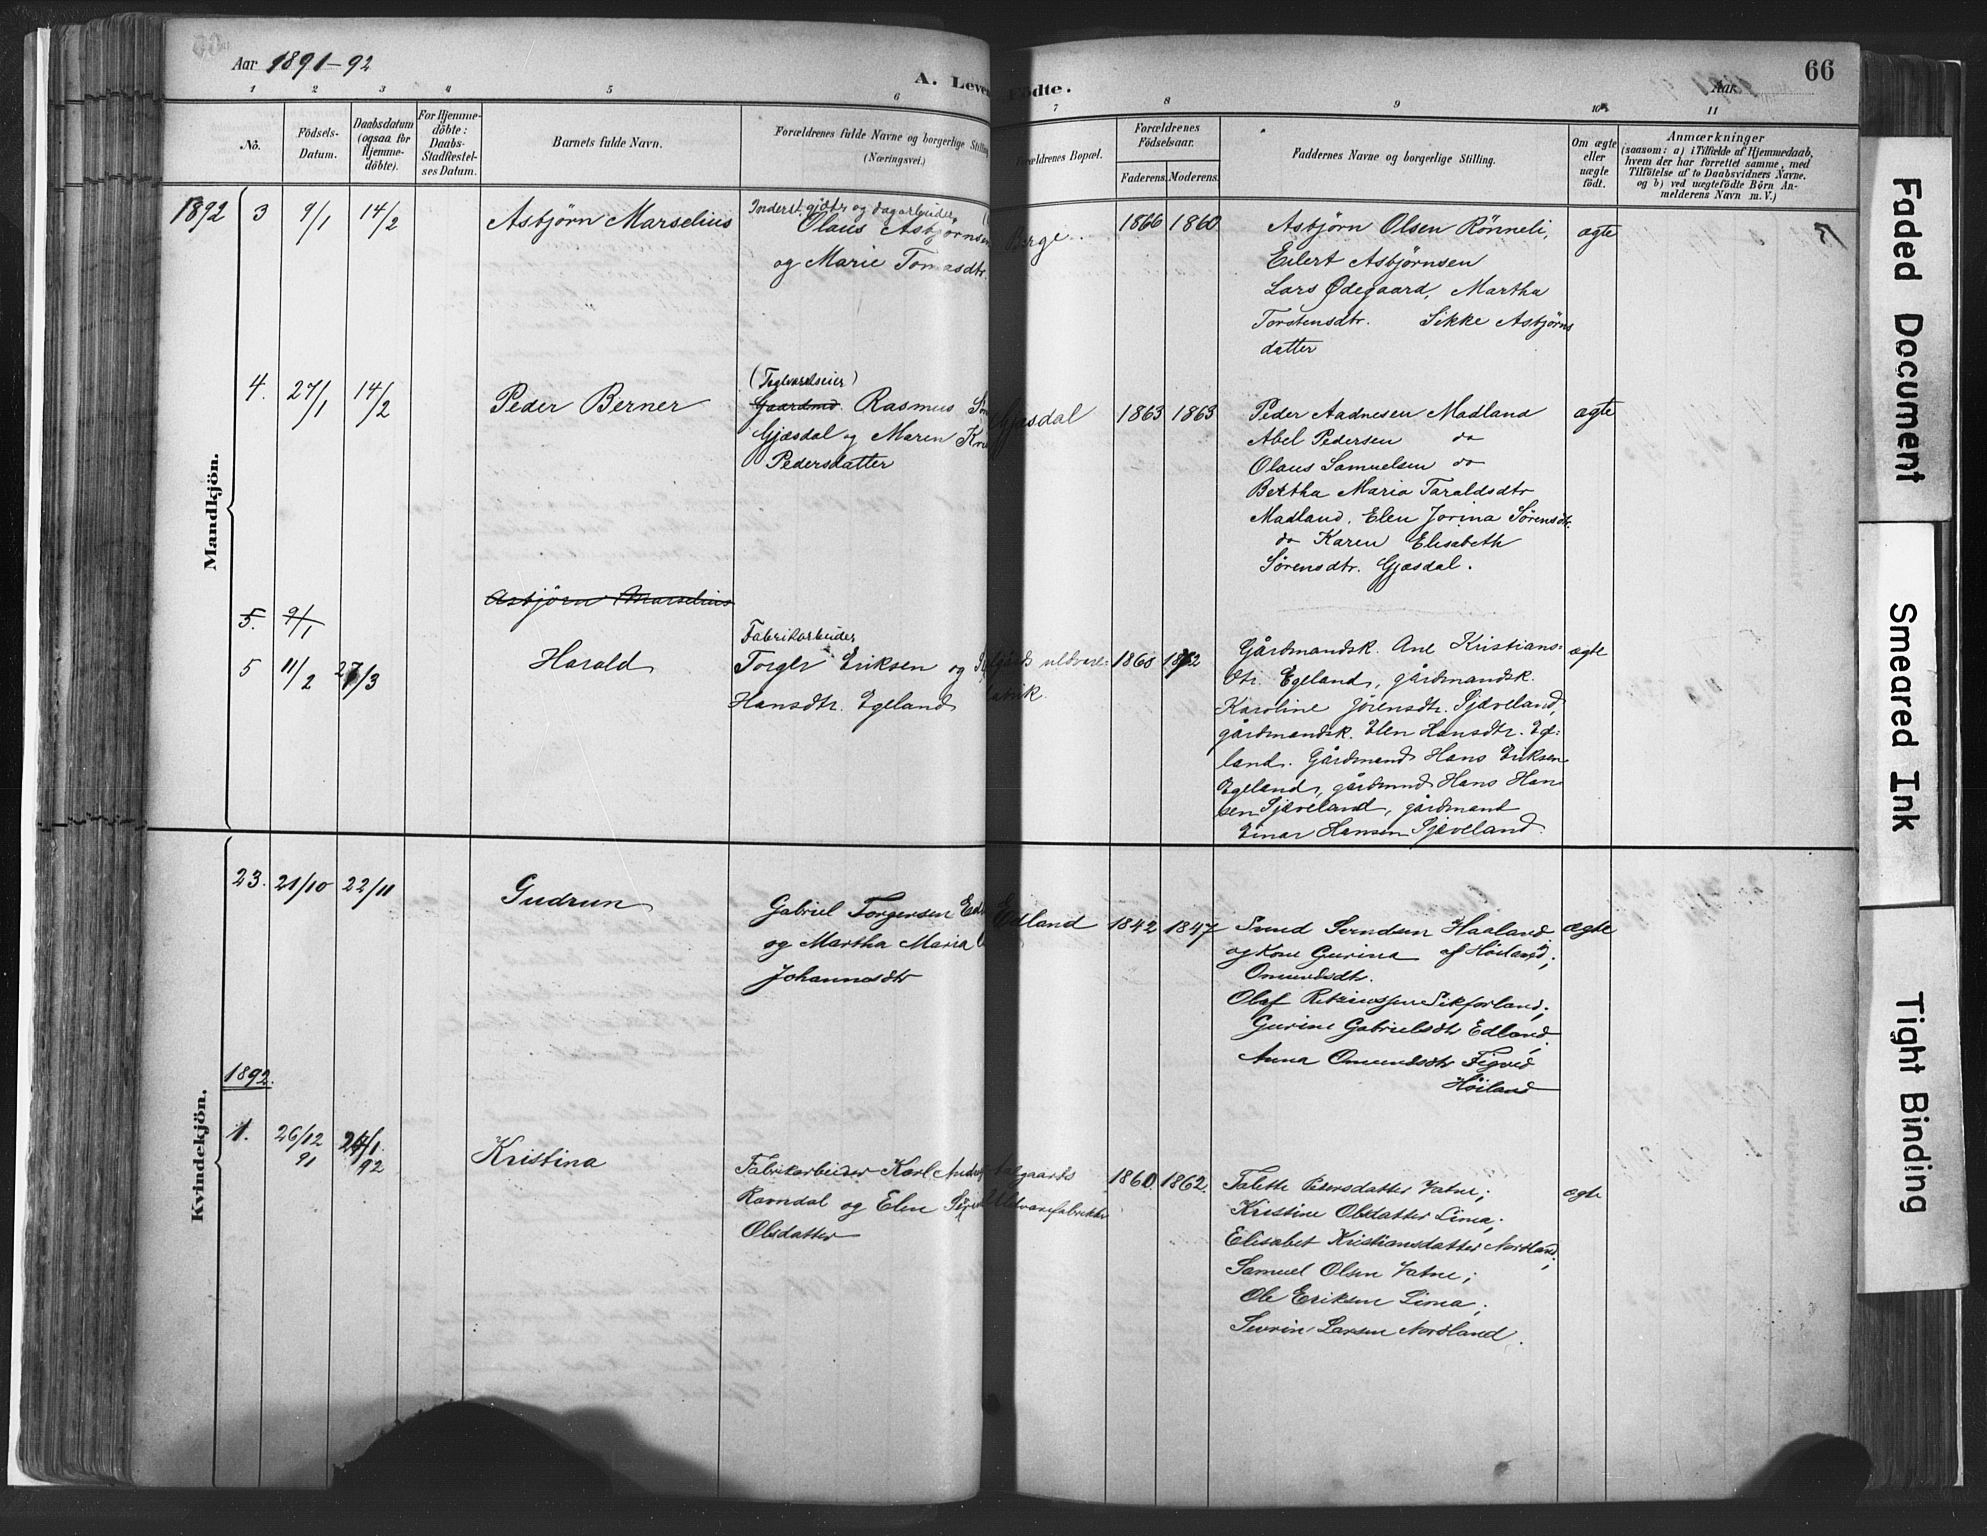 Aar 1891-92
A. Levende Födte.
Aar
66
1 2 3 4 5 6 7 8 9 10 11
No.
Födsels-Datum.
Daabsdatum (ogsaa for Hjemme-döbte).
For Hjemme-döbte: Daabs-Stadfæstel-ses Datum.
Barnets fulde Navn.
Forældrenes fulde Navne og borgerlige Stilling (Næringsvei.)
Forældrenes Bopæl.
Forældrenes Födselsaar.
Faderens. Moderens.
Faddernes Navne og borgerlige Stilling.
Om ægte eller uægte födt.
Anmærkninger
(saasom: a) i Tilfælde af Hjemmedaab, hvem der har forrettet samme, med Tilföielse af to Daabsvidners Navne, og b) ved uægtefödte Börn An-melderens Navn m. V.)
Mandkjön.
1892 3 9/1 14/2 Asbjörn Marselius
Inderst, gjæter og dagarbeider
Olaus Asbjørnsen
og Marie Tomasdtr.
Berge. 1866 1860
Asbjörn Olsen Rönneli,
Eilert Asbjørnsen
Lars Ødegaard, Martha
Torstensdtr. Sikke Asbjørns
datter
ægte
4. 27/1 14/2 Peder Berner
(Teglværkseier)
Gaardmd. Rasmus
Gjæsdal og Maren
Pedersdatter
Gjæsdal 1863 1863
Peder Aadnesen Madland
Abel Pedersen do
Olaus Samuelsen do
Bertha Maria Taraldsdtr
Madland, Elen Jorina Sörensdtr.
do Karen Elisabeth
Sörensdtr. Gjæsdal.
ægte
5. 9/1 Asbjörn Marselius
5 11/2 27/3 Harald
Fabrikarbeider
Torger Eriksen og
Hansdtr. Egeland
uldvare-
fabrik.
1860 1862
Gårdmandsk. Ane Kristians-
dtr. Egeland, gårdmandsk.
Karoline Jörensdtr. Sjæveland,
gårdmandsk. Elen Hansdtr. Eg-
land. Gårdmand Hans Eriksen
Egeland, gårdmand Hans Han
sen Sjæveland, gårdmand
Einar Hansen Sjæveland.
ægte
Kvindekjön.
23. 21/10 22/11 Gudrun
Gabriel Torgersen
og Martha Maria
Johannesdtr
Edland 1842 1847
Svend Serndsen Haaland
og Kone Gurina af Höiland;
Omundsdtr.
Olaf Sikforland;
Gurine Gabrielsdtr Edland,
Anna Omundsdtr Figved
Höiland
ægte
1892.
1. 26/12 91 24/1 92 Kristina
Fabrikarbeider Karl
Ramdal og Elen
Olsdatter
Aalgaards
Uldvarefabrikker
1860. 1862.
Talette Petersdatter Vatne;
Kristine Olsdatter Lima;
Elisabet Kristiansdatter Nordland;
Samuel Olsen Vatne;
Ole Eriksen Lima;
Sevrin Larsen Nordland.
ægte
Faded Document
Smeared Ink
Tight Binding